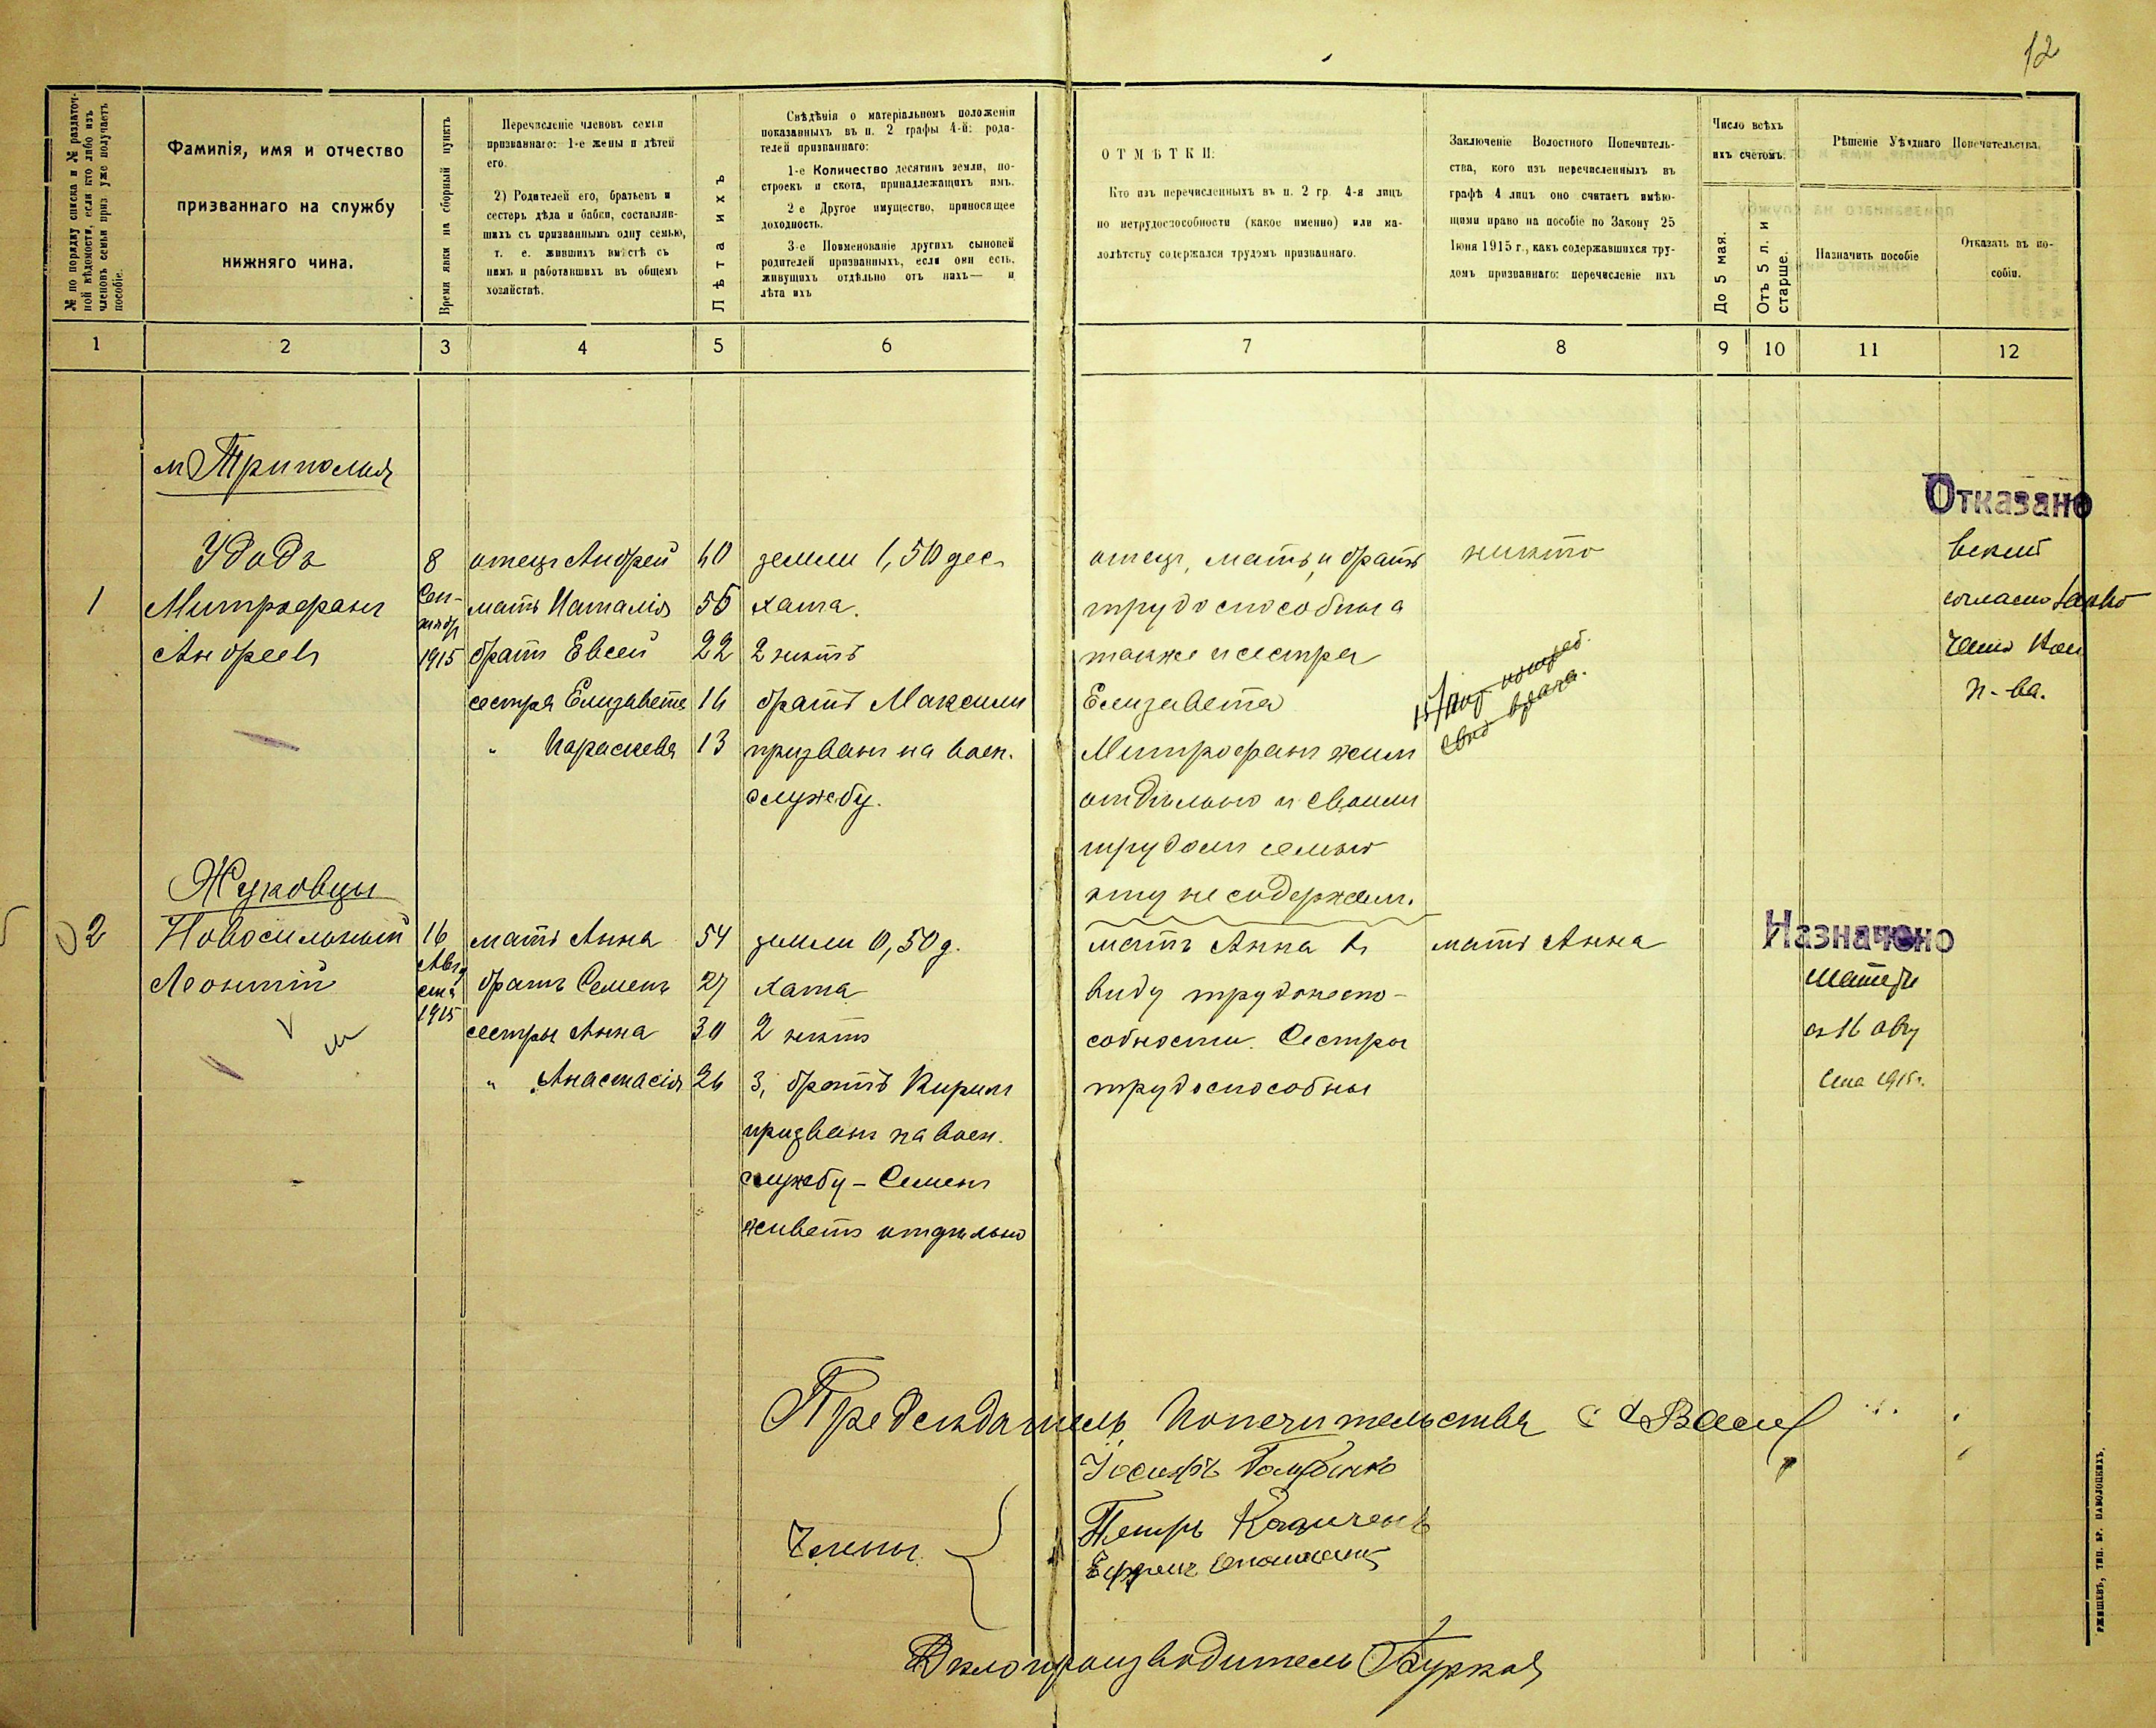 12
№ по порядку списка и № раздаточ-
ной вѣдомости, если кто либо изъ
членовъ семьи приз уже получаетъ
пособіе.
Фамилія, имя и отчество
призваннаго на службу
нижняго чина.
Время явки на сборный пунктъ
Перечисленіе членовъ семьи
призваннаго: 1-е жены и дѣтей
его.
2) Родителей его, братьевъ и
сестеръ дѣда и бабки, составляв-
шихъ съ призваннымъ одну семью,
т. е. жившихъ вмѣстѣ съ
нимъ и работавшихъ въ общемъ
хозяйствѣ.
Лѣта ихъ
Свѣдѣнія о матеріальномъ положеніи
показанныхъ въ п. 2 графы 4-й: роди-
телей призваннаго:
1-е Количество десятинъ земли, по-
строекъ и скота, принадлежащихъ имъ.
2-е Другое имущество, приносящее
доходность.
3-е Поименованіе другихъ сыновей
родителей призванныхъ, если они есть,
живущихъ отдѣльно отъ нихъ— и
лѣта ихъ
ОТМѢТКИ:
Кто изъ перечисленныхъ въ п. 2 гр. 4-я лицъ
по нетрудоспособности (какое именно) или ма-
лолѣтству содержался трудомъ призваннаго.
Заключеніе Волостного Попечитель-
ства, кого изъ перечисленныхъ въ
графѣ 4 лицъ оно считаетъ имѣю-
щими право на пособіе по Закону 25
Іюня 1915 г., какъ содержавшихся тру-
домъ призваннаго: перечисленіе ихъ
Число всѣхъ
ихъ счетомъ.
До 5 мая.
Отъ 5 л. и
старше.
Рѣшеніе Уѣзднаго Попечительства.
Назначить пособіе
Отказать въ по-
собіи.
1 2 3 4 5 6 7 8 9 10 11 12
м Триполья
Отказано
Удодъ 8 отецъ Андрей 60 земли 1,50 дес. отецъ, мать и братъ никто
1 Митрофанъ Сен- мать Наталія 55 хата. трудоспособны а согласно
тябр
Андреевъ 1915 братъ Евсей 22 2 нѣтъ также и сестра
сестра Елизавета 16 братъ Максимъ Елизавета п-ва.
" Параскева 13 призванъ на воен. Митрофанъ жилъ
службу. отдѣльно и своимъ
трудомъ семью
эту не содержалъ.
Жуковцы
Назначено
2 Новосильный 16 мать Анна 54 земли 0,50 д. мать Анна въ мать Анна
Леонтій Авгу
ста братъ Семенъ 27 хата виду трудонеспо- матери
1915 сестры Анна 30 2 нѣтъ собности. Сестры съ 16 авгу
" Анастасія 26 3, братъ Кирилъ трудоспособны ста 1915 г.
призванъ на воен.
службу – Семенъ
живетъ отдѣльно
Предсѣдатель Попечительства
Іосифъ
Члены Петръ
Ефремъ
Дѣлопроизводитель
РЖИЩЕВЪ, ТИП. БР. ПАВОЛОЦКИХЪ.